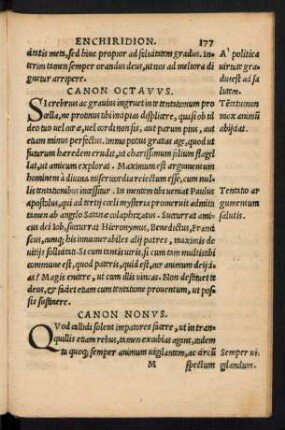 ENCHIRIDION. 177
dantis metę, sed hinc propior ad salutatem gradus. In-
terim tamen semper orandus deus, ut nos ad meliora di
gnetur arripere.
A' politica
uirtute gra
dus est ad sa
lutem.
CANON OCTAVVS.
SI crebrius ac grauius ingruet in te tentationum pro
cella, ne protinus tibi inapias displicere, quasi ob id
deo tuo uel curæ, uel cordi non sis, aut parum pius, aut
etiam minus perfectus. immo potius gratias age, quod ut
futurum hæredem erudit, ut charissimum filium flagel
lat, ut amicum explorat. Maximum est argumentum
hominem à diuina misericordia reiectum esse, cum nul
lis tentationibus incessitur. In mentem tibi ueniat Paulus
apostolus, qui ad tertij cœli mysteria promeruit admitti
tamen ab angelo Satanæ colaphizatus. Succurrat ami-
cus dei Iob, succurrat Hieronymus, Benedictus, Franci
scus, cumq; his innumerabiles alij patres, maximis de
uitijs sollicitati. Si cum tantis uiris, si cum tam multis tibi
commune est, quod pateris, quid est, cur animum deij-
cias? Magis enitere, ut cum illis uincas. Non destituet te
deus, & faciet etiam cum tentatione prouentum, ut pos-
sis sustinere.
Tentationum
mox animū
abijdat.
Tentatio ar
gumentum
salutis.
CANON NONVS.
QVod callidi solent impatores facere, ut in tran-
quillis etiam rebus, tamen excubias agant, itidem
tu quoq; semper animum uigilantem, ac circū
Semper ui
gilandum.
M spectum